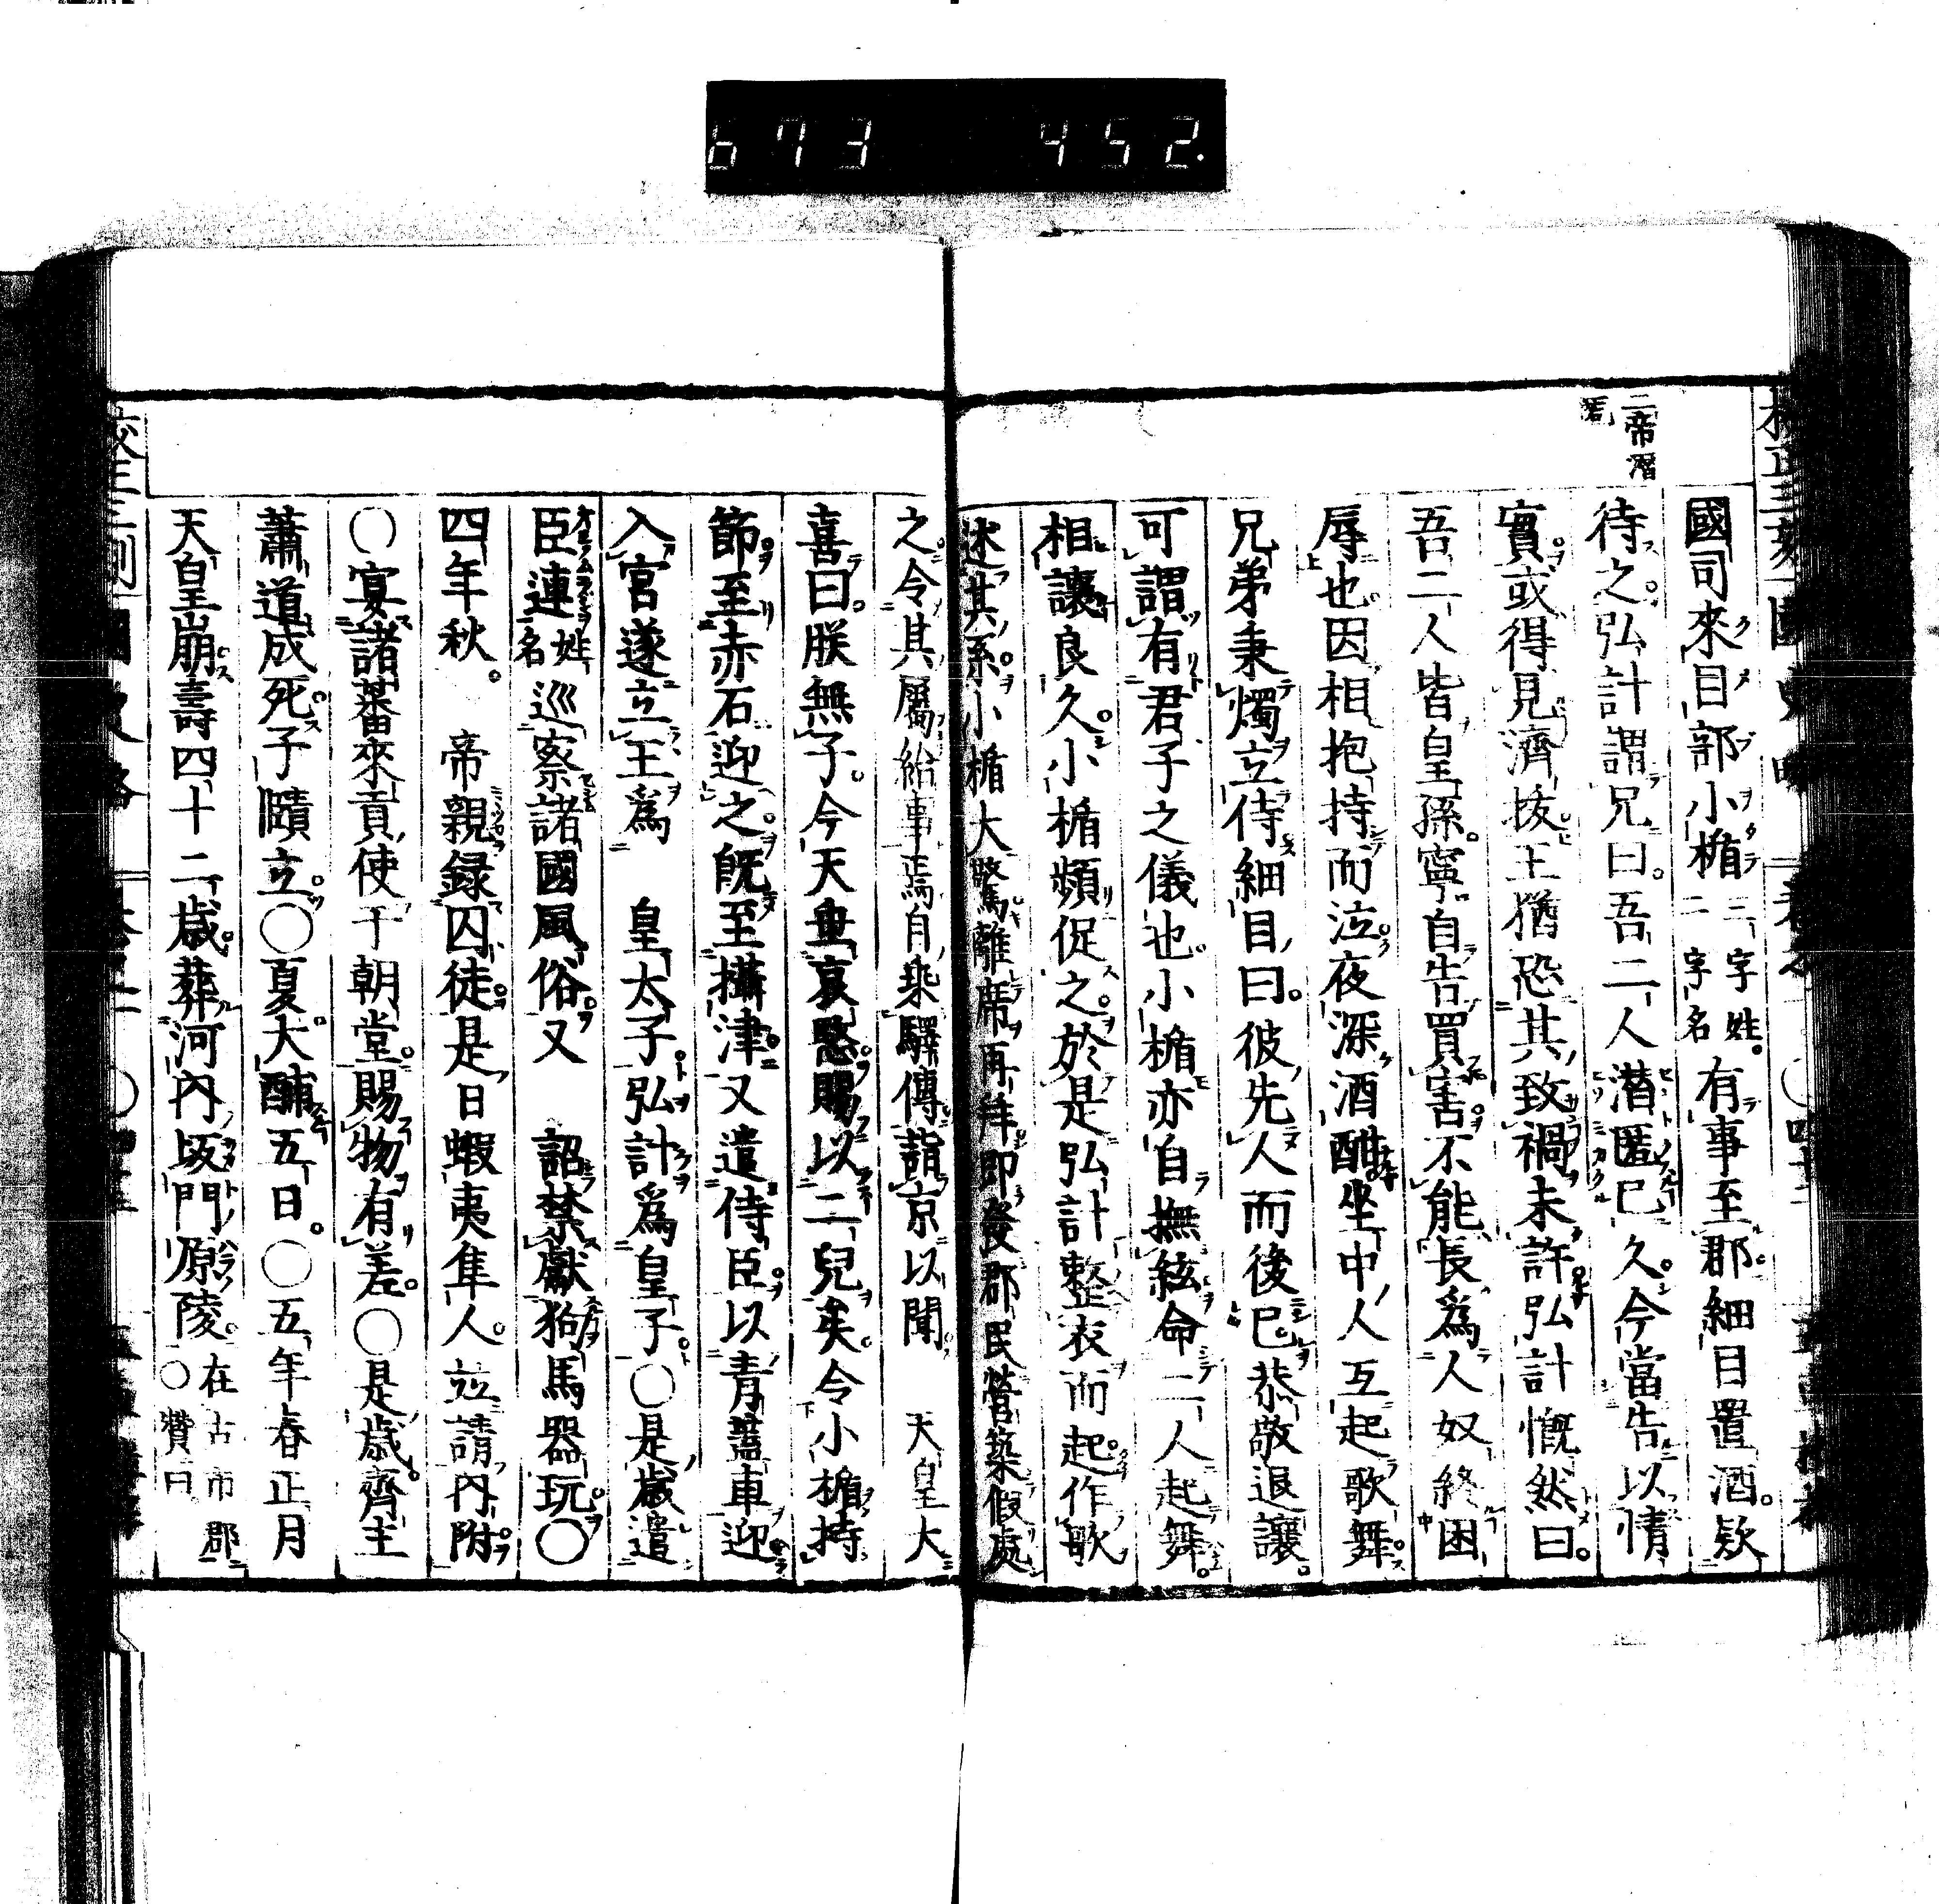 673 452.
二帝潛
匿
國司來目部小楯二字姓。二字名有事至郡細目置酒。欵
待之。弘計謂兄曰。吾二人潛匿已久。今當告以情
實。或得見濟拔王猶恐其致禍未許。弘計慨然曰。
吾二人皆皇孫。寧自告買害。不能長爲人奴終困
辱也。因相抱持而泣。夜深酒酣坐中人互起歌舞。
兄弟秉燭立侍細目曰。彼先人而後已恭敬退讓。
可謂有君子之儀也。小楯亦自撫絃命二人起舞。
相讓良久。小楯頻促之。於是弘計整衣而起。作歌
述其系。小楯大驚離席再拜即發郡民營築假處
之。令其屬給事焉自乗驛傳詣京以聞 天皇大
喜曰。朕無子。今天垂哀愍。賜以二兒矣。令小楯持
節。至赤石迎之。既至攝津。又遣侍臣。以青蓋車迎
入宮遂立王爲 皇太子。弘計爲皇子。〇是歲遣
臣連姓名巡察諸國風俗。又 詔禁獻狗馬器玩。〇
四年秋。 帝親録囚徒。是日蝦夷隼人。竝請内附。
〇宴諸蕃來貢使于朝堂。賜物有差。〇是歲。齊主
蕭道成死。子賾立。〇夏大酺五日。〇五年春正月
天皇崩壽四十二歲。葬河内坂門原陵。在古市郡〇贊曰